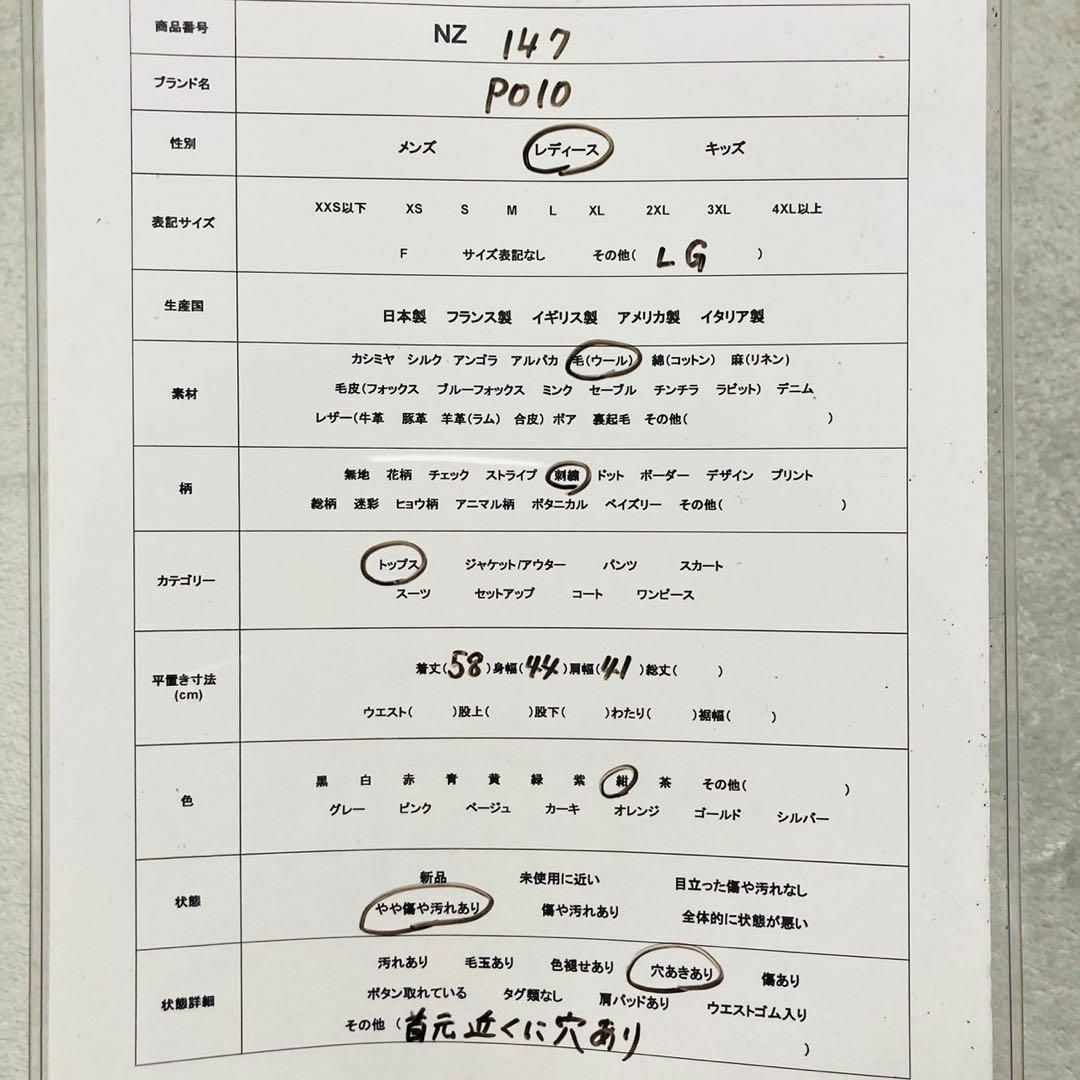 商品番号 NZ 147
ブランド名 POlO
性別 メンズ レディース キッズ
表記サイズ XXS以下 XS S M L XL 2XL 3XL 4XL以上
F サイズ表記なし その他( LG )
生産国 日本製 フランス製 イギリス製 アメリカ製 イタリア製
カシミヤ シルク アンゴラ アルパカ 毛(ウール) 綿(コットン) 麻(リネン)
素材 毛皮(フォックス ブルーフォックス ミンク セーブル チンチラ ラビット) デニム
レザー(牛革 豚革 羊革(ラム) 合皮) ボア 裏起毛 その他( )
柄 無地 花柄 チェック ストライプ 刺繍 ドット ボーダー デザイン プリント
総柄 迷彩 ヒョウ柄 アニマル柄 ボタニカル ペイズリー その他( )
カテゴリー トップス ジャケット/アウター パンツ スカート
スーツ セットアップ コート ワンピース
平置き寸法 着丈(58)身幅(44)肩幅(41)総丈( )
(cm) ウエスト( )股上( )股下( )わたり( )裾幅( )
色 黒 白 赤 青 黄 緑 紫 紺 茶 その他( )
グレー ピンク ベージュ カーキ オレンジ ゴールド シルバー
状態 新品 未使用に近い 目立った傷や汚れなし
やや傷や汚れあり 傷や汚れあり 全体的に状態が悪い
状態詳細 汚れあり 毛玉あり 色褪せあり 穴あきあり 傷あり
ボタン取れている タグ類なし 肩パッドあり ウエストゴム入り
その他 (首元近くに穴あり )